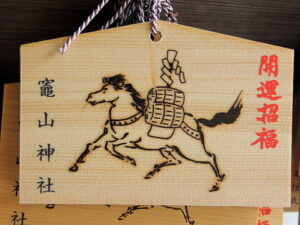 開運招福
竈山神社